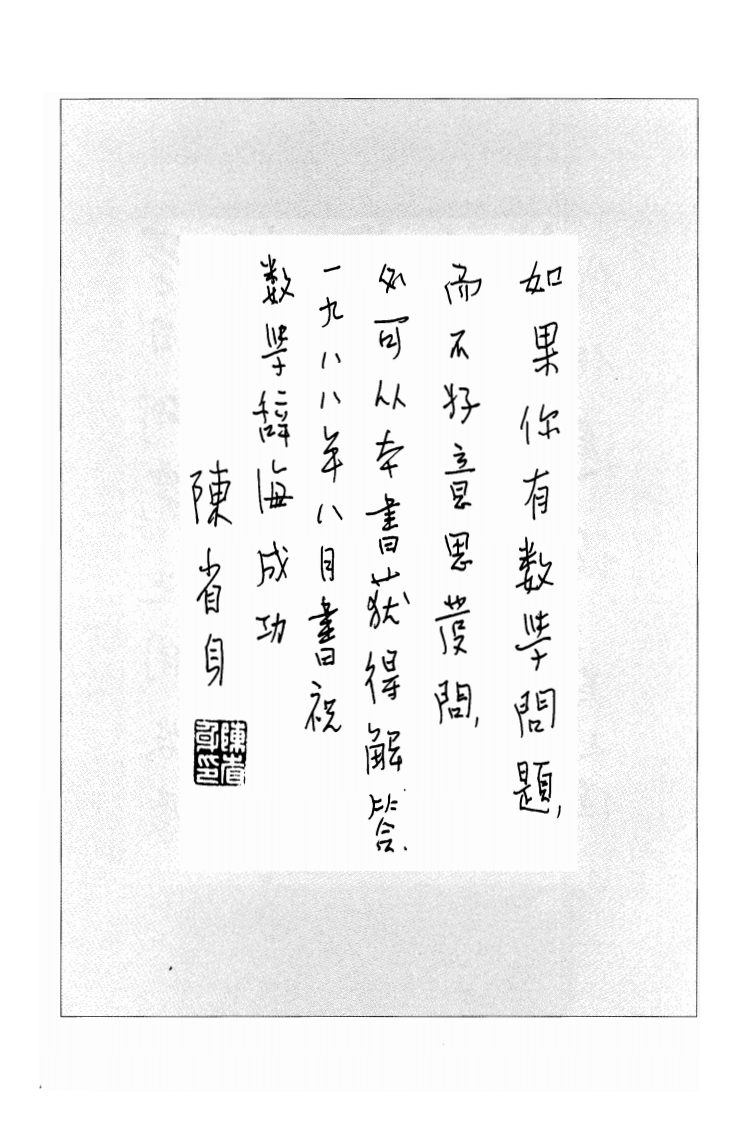 如果你有数学問題,
而不好意思發問,
必可以本書获得解答.
一九八八年八月書祝
数学辭海成功
陳省身
陳省身印